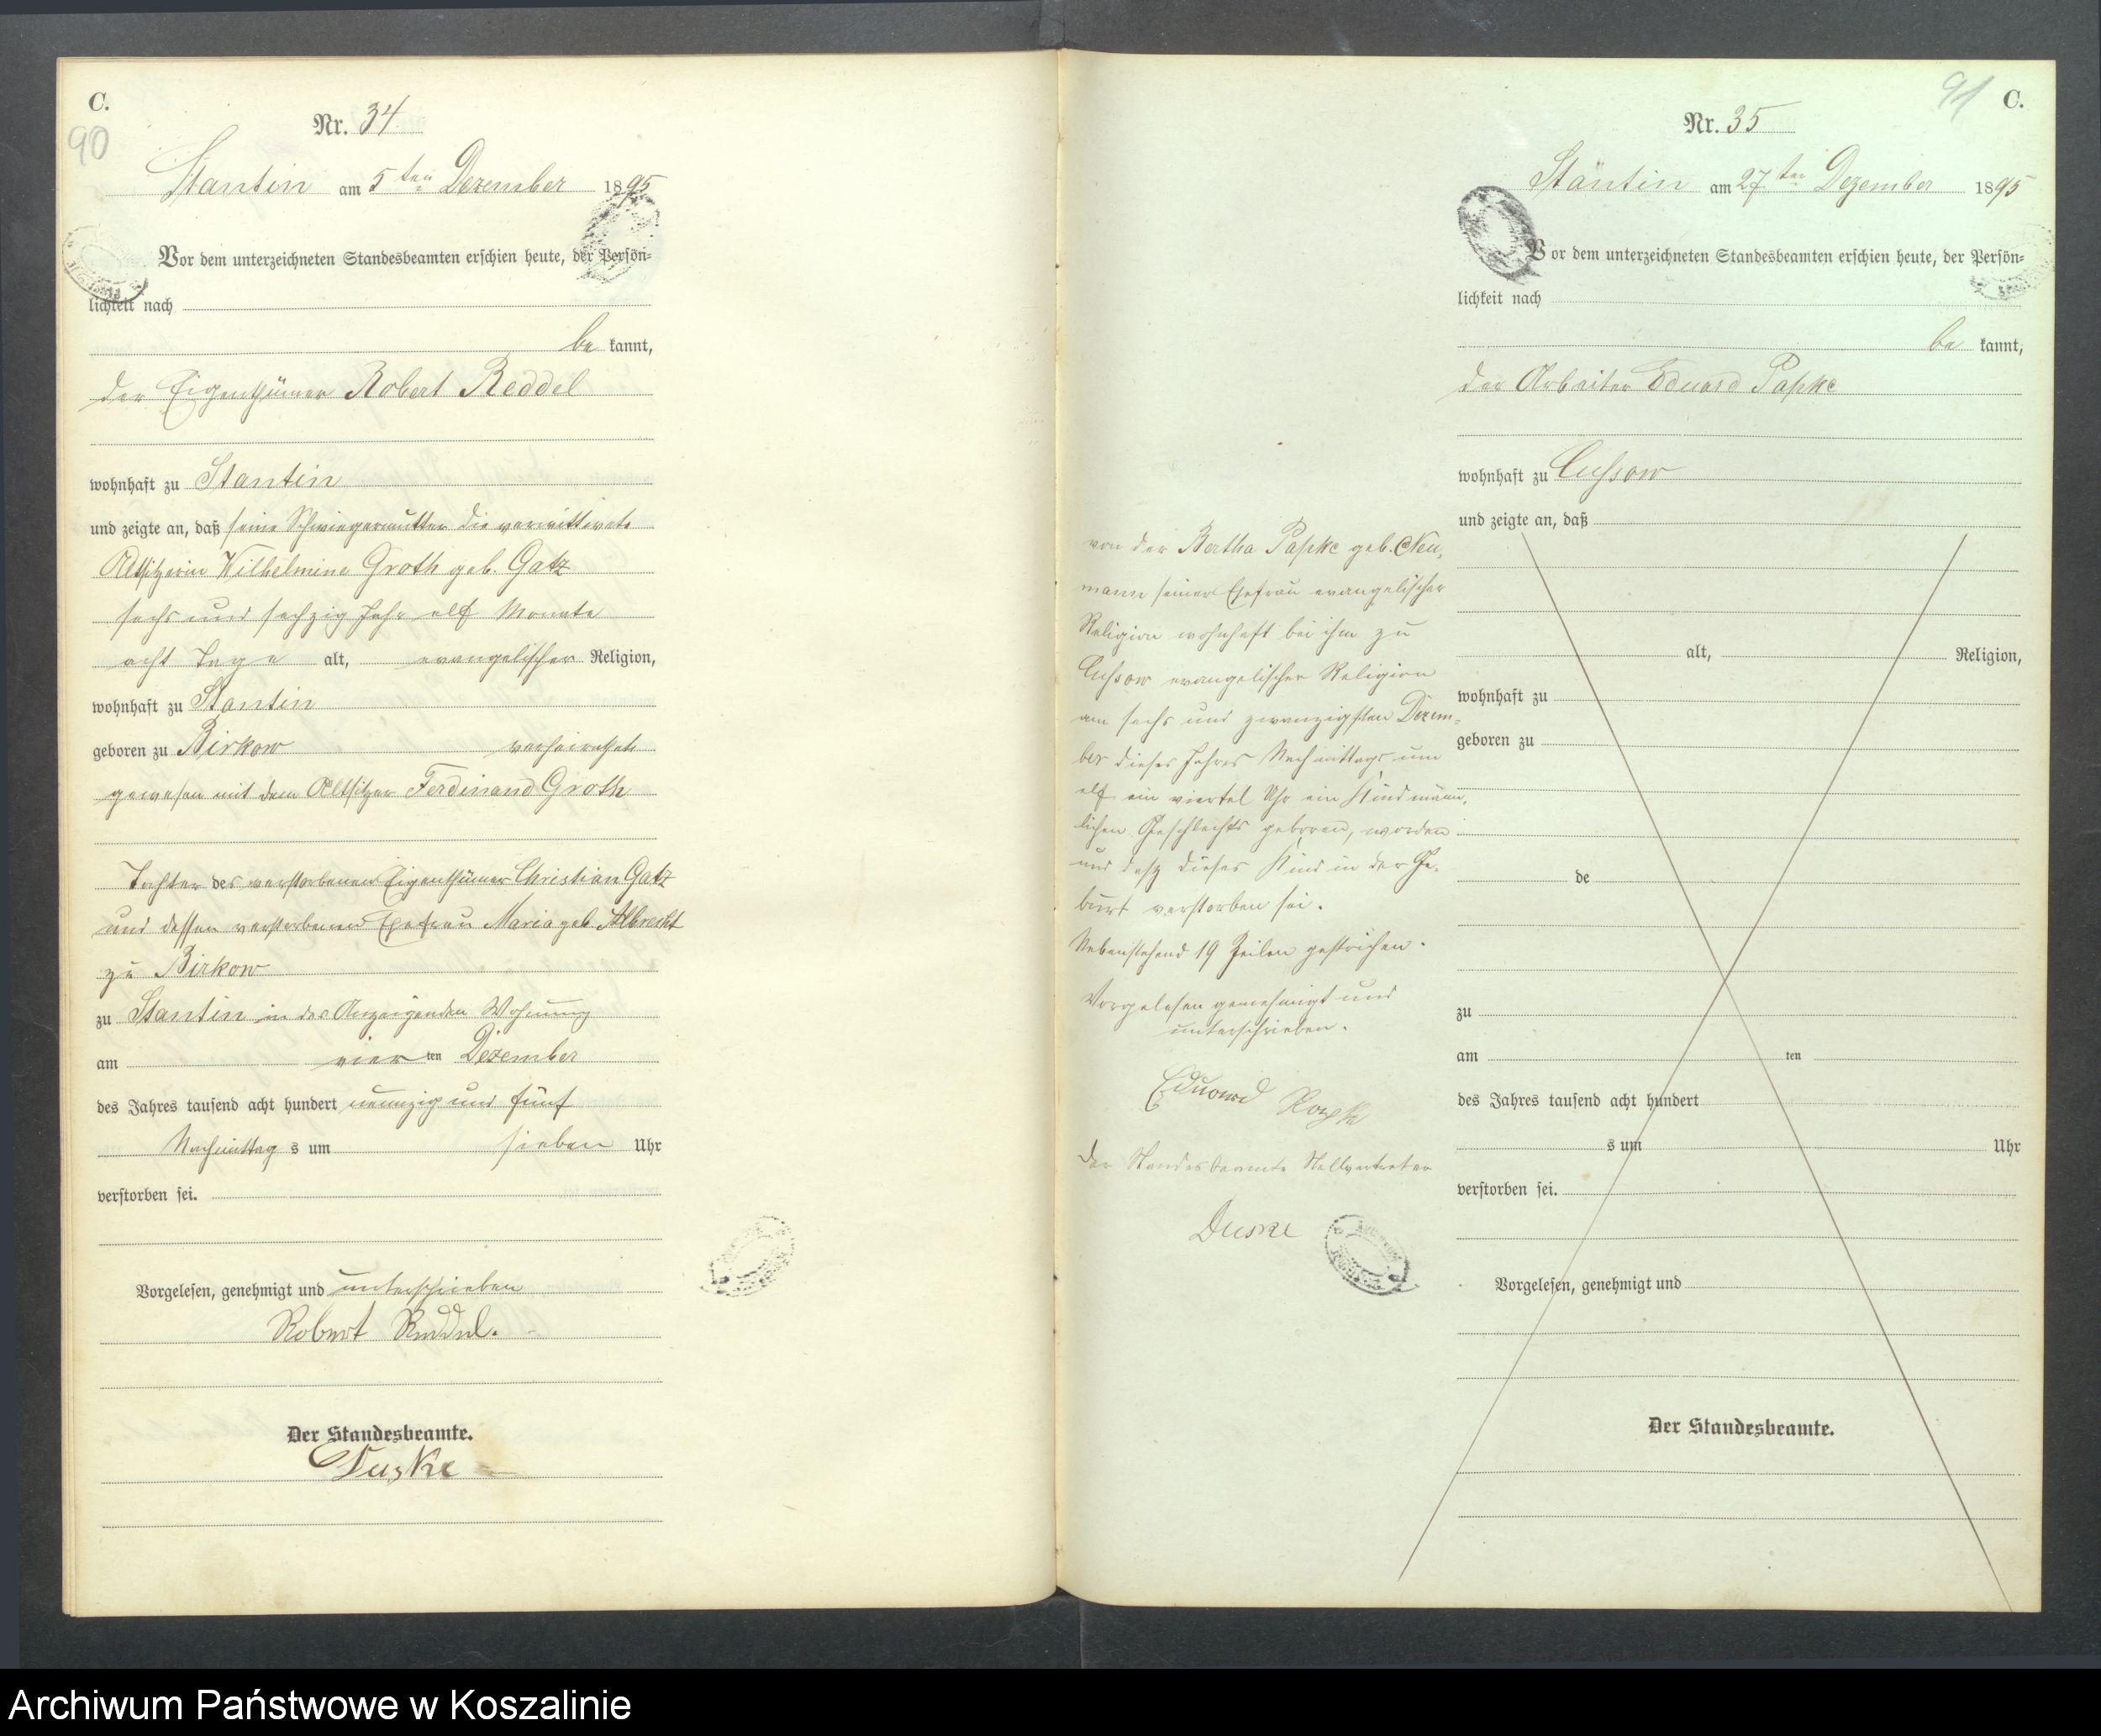 C.
90
Nr. 34
Stantin am 5ten Dezember 1895
Vor dem unterzeichneten Standesbeamten erschien heute, der Persön-
lichkeit nach
be kannt,
der Eigenthümer Robert Reddel
wohnhaft zu Stantin
und zeigte an, daß seine Schwiegermutter die verwittwete
Altsitzerin Wilhelmine Groth geb. Gatz
sechs und sechzig Jahr elf Monate
acht Tage alt, evangelischer Religion,
wohnhaft zu Stantin
geboren zu Birkow verheirathet
gewesen mit dem Altsitzer Ferdinand Groth
Tochter des verstorbenen Eigenthümer Christian Gatz
und dessen verstorbenen Ehefrau Maria geb. Albrecht
zu Birkow
zu Stantin in des Anzeigenden Wohnung
am vier ten Dezember
des Jahres tausend acht hundert neunzig und fünf
Nachmittag s um sieben Uhr
verstorben sei.
Vorgelesen, genehmigt und unterschrieben
Robert Reddel.
Der Standesbeamte.
Duske
91 C.
Nr. 35
Stäntin am 27ten Dezember 1895
Vor dem unterzeichneten Standesbeamten erschien heute, der Persön-
lichkeit nach
be kannt,
der Arbeiter Eduard Papke
wohnhaft zu Cussow
und zeigte an, daß
von der Bertha Papke geb. Neu-
mann seiner Ehefrau evangelischer
Religion wohnhaft bei ihm zu
Cussow evangelischer Religion
am sechs und zwanzigsten Dezem-
ber dieses Jahres Nachmittags um
elf ein viertel Uhr ein Kind männ-
lichen Geschlechts geboren, worden
und daß dieses Kind in der Ge-
burt verstorben sei.
Nebenstehend 19 Zeilen gestrichen.
Vorgelesen genehmigt und
unterschrieben.
Eduard
Der Standesbeamte Stellvertreter
Duske
alt, Religion,
wohnhaft zu
geboren zu
de
zu
am ten
des Jahres tausend acht hundert
s um Uhr
verstorben sei.
Vorgelesen, genehmigt und
Der Standesbeamte.
Archiwum Państwowe w Koszalinie